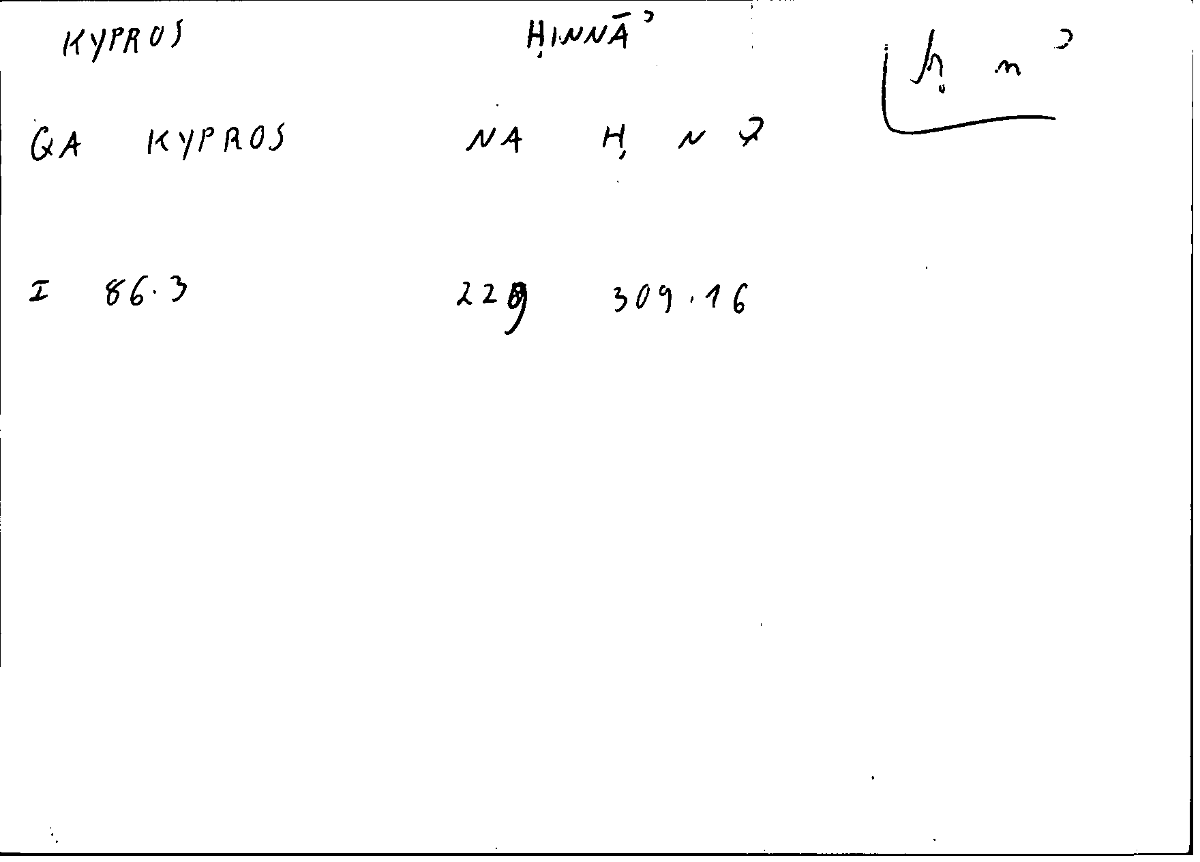 KYPROS ḤINNĀʾ ḥ n ʾ
GA KYPROS NA Ḥ N ʾ
I 86.3 229 309.16